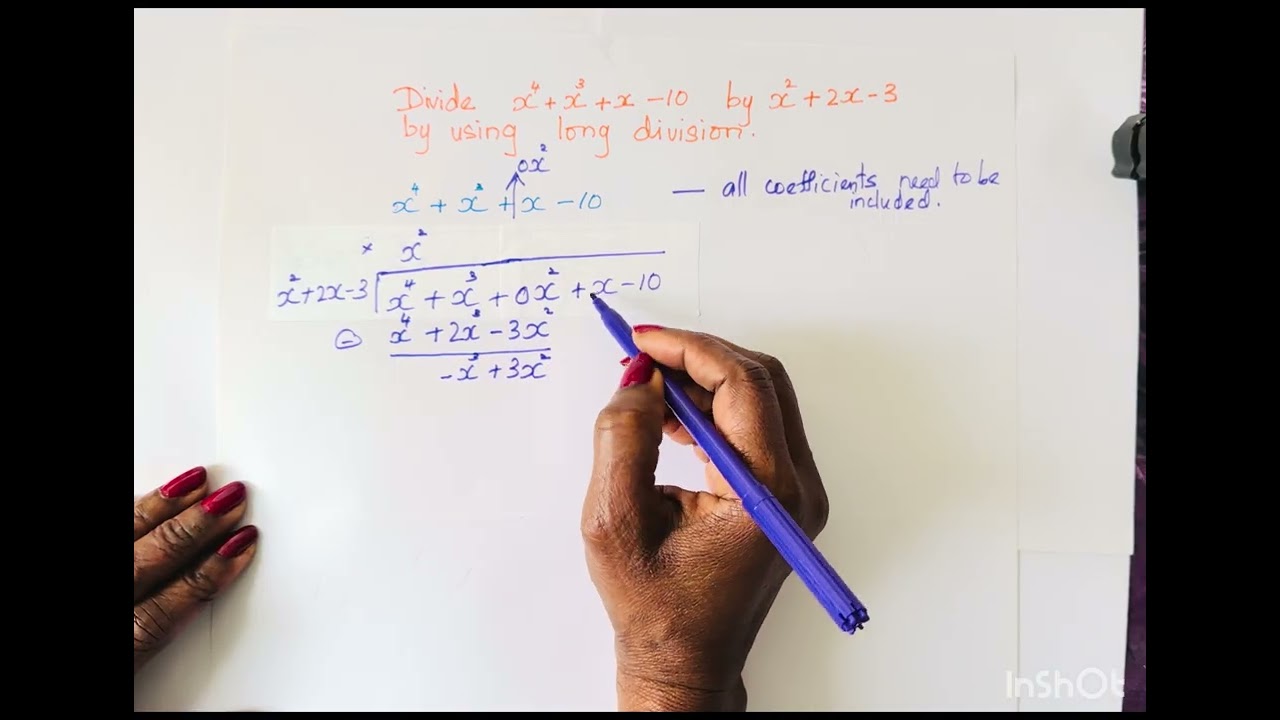 Divide x⁴ + x³ + x - 10 by x² + 2x - 3
by using long division.
0x²
x⁴ + x³ + x - 10
— all coefficients need to be
included.
× x²
x² + 2x - 3 x⁴ + x³ + 0x² + x - 10
⊖ x⁴ + 2x³ - 3x²
- x³ + 3x²
InShOt